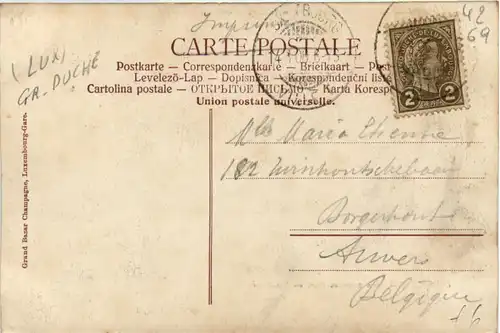 Imprimé
42
69
CARTE POSTALE
(LUX)
GR. DUCHÉ
Postkarte — Correspondenzkarte — Briefkaart — Post
Levelező-Lap — Dopisnica — Korespondenční lístek
Cartolina postale — ОТКРЫТОЕ ПИСЬМО — Karta Korespo
Union postale universelle.
2 2
Mlle Maria Etienne
182
Borgerhout
Anvers
Belgique
Grand Bazar Champagne, Luxembourg-Gare.